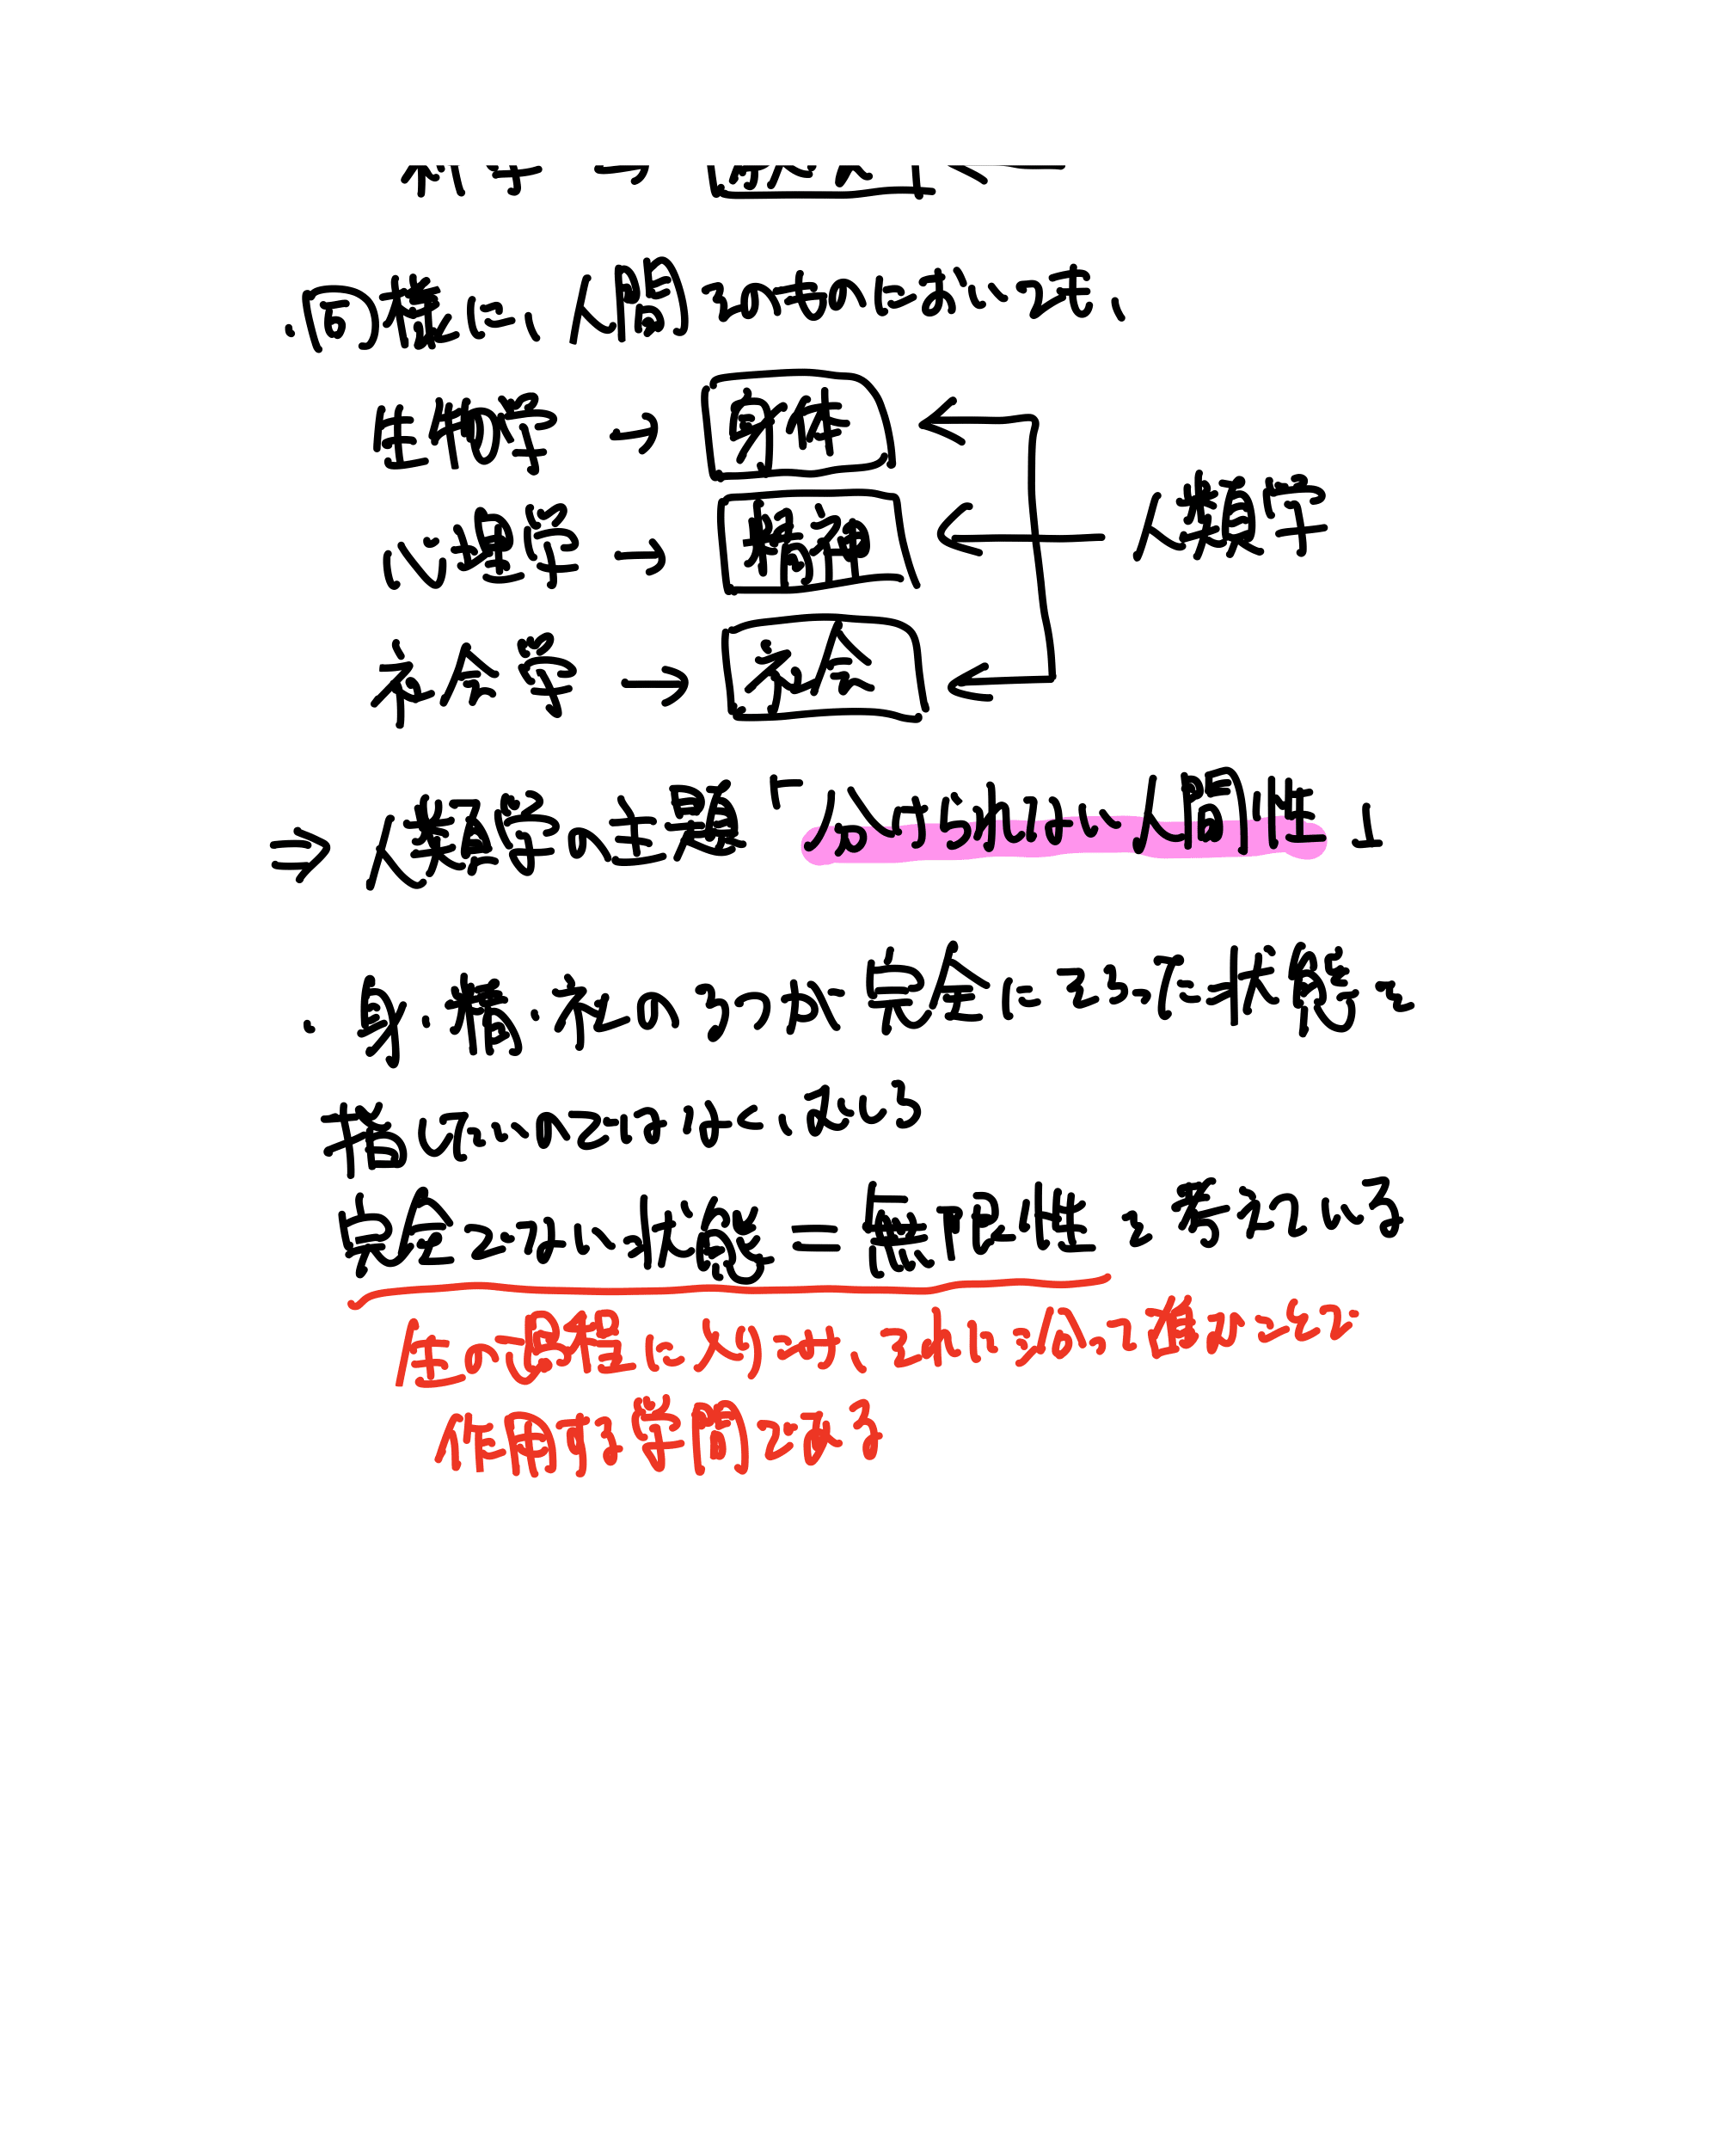 ・同様に、人間そのものにおいても、
生物学 → 身体
心理学 → 精神 ← 人類学
社会学 → 社会
⇒ 人類学の主題「分けられない人間性」
・身・精・社の3つが完全にそろった状態を
指したいのではなく、むしろ
完全でない状態＝無限性と考えている
生の過程に入りこみ、それに沿って進むことで
作用する学問である